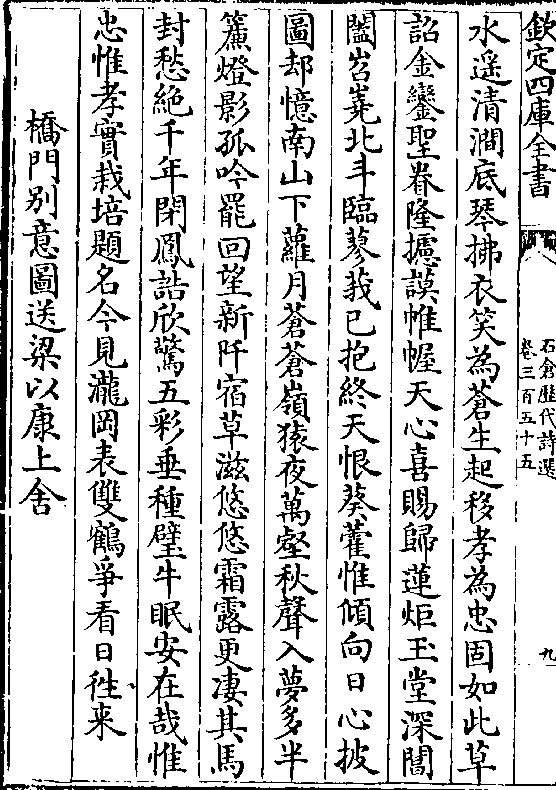 欽定四庫全書
石倉歴代詩選
卷三百五十五
九
水遥清澗底琴拂衣笑為蒼生起移孝為忠固如此草
詔金鑾聖眷隆攄謨帷幄天心喜賜歸蓮炬玉堂深閶
闔岧嶤北斗臨蓼莪已抱終天恨葵藿惟傾向日心披
圖却憶南山下蘿月蒼蒼嶺猿夜萬壑秋聲入夢多半
簾燈影孤吟罷回望新阡宿草滋悠悠霜露更凄其馬
封愁絶千年閉鳳誥欣驚五彩垂種璧牛眠安在哉惟
忠惟孝實栽培題名今見瀧岡表雙鶴爭看日徃来
橋門别意圖送梁以康上舍